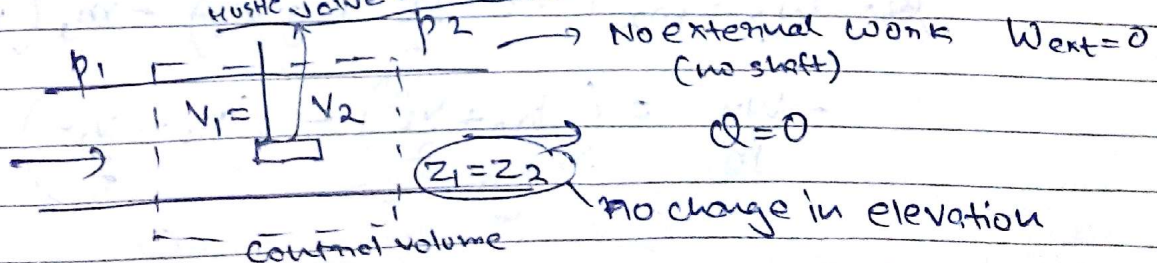 valve
p1 p2 → No external work Wext=0
(no shaft)
V1= V2 Q=0
→ Z1=Z2 →
no change in elevation
Control volume